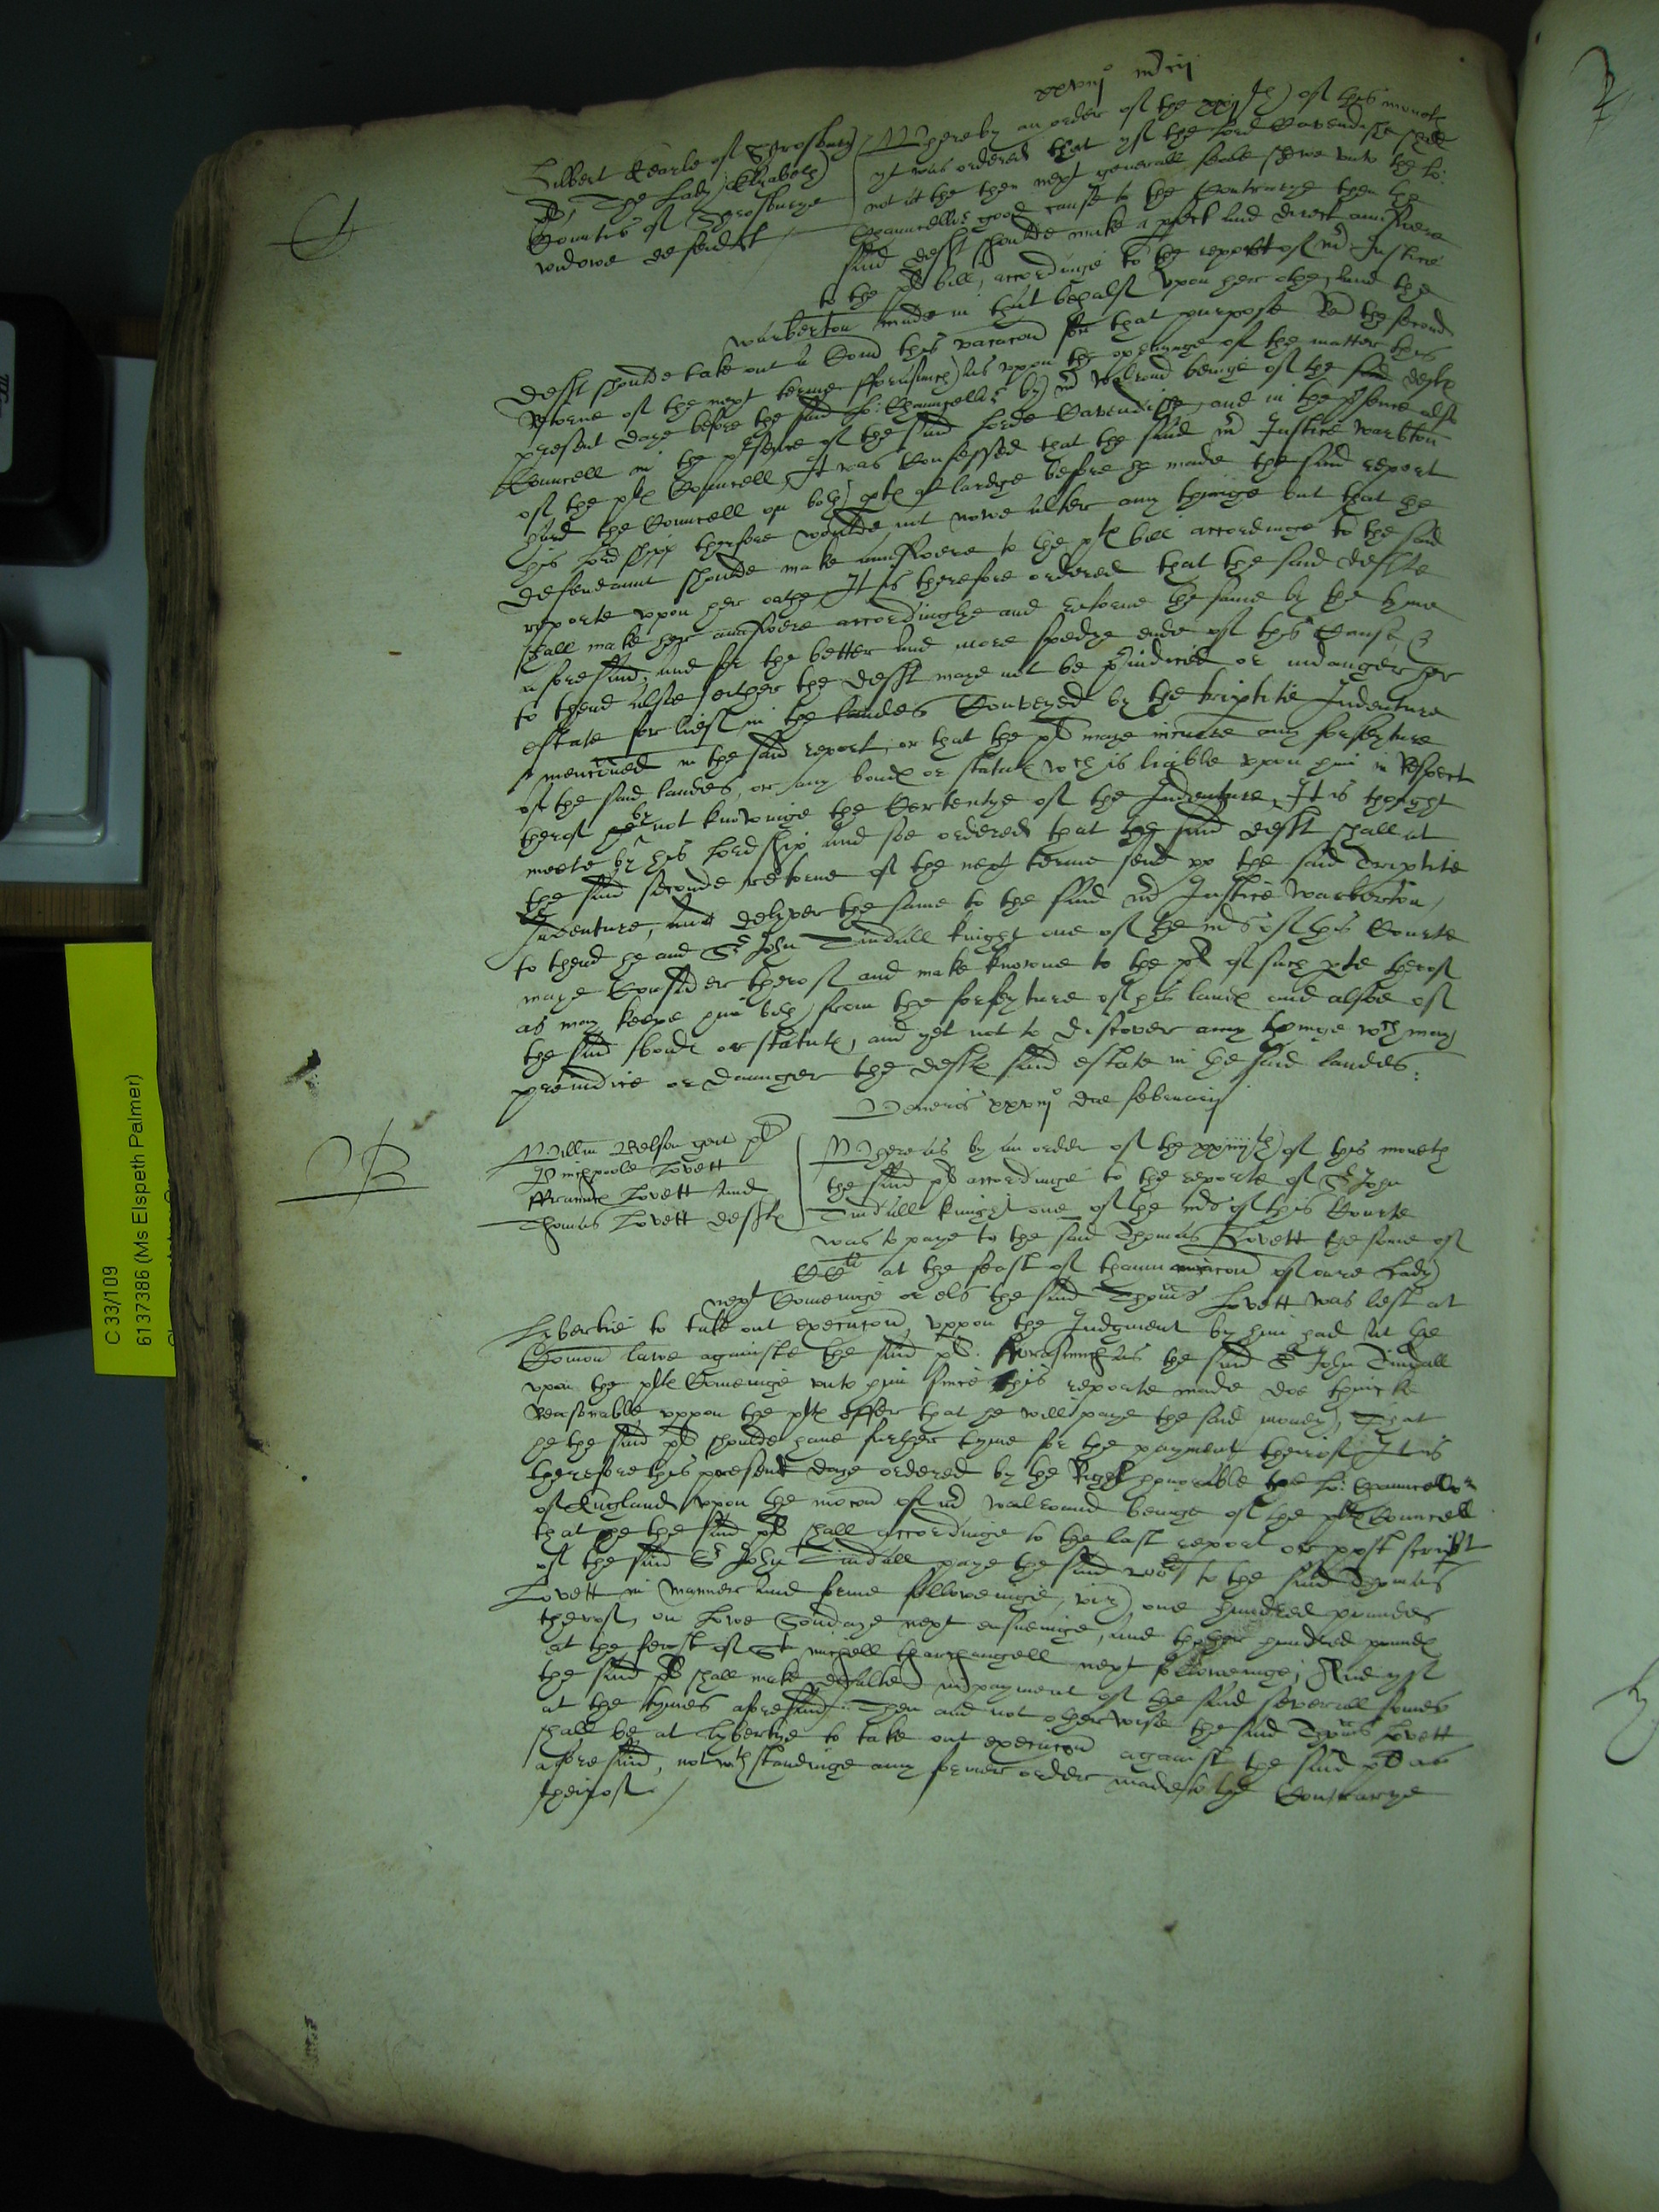 xxviij° mcij
S
Gilbert Earle of Shrosbury
pl, The Lady Elizabeth
Countes of Shrosburye
widowe defendt
Whereby an order of the xxjth of this moneth
yt was ordered that yf the lord Cavendishe shold
not at the then next generall seale shewe unto the lo:
Chauncellor good cause to the Contrarye then the
said defft shoulde make a pfect and direct answere
to the pl bill, accordinge to the reporte of mr Justice
warberton made in that behalf upon her othe, and the
defft shoulde take out a Comd this vacacon for that purpose Ret the second
Retorne of the next terme fforasmuch as uppon the openinge of the matter this
present daye before the said lo: Chauncellor by mr Walrond beinge of the said deftes
Councell in the pesence of the said lorde Cavendishe and in the psence also
of the pltes Councell, It was Confessed that the said mr Justice warbton
hard the Councell on both ptes at lardge before he made the said report
his Lordshipp therfore woulde not nowe alter any thinge but that the
defendaunt shoulde make aunswere to the pltes bill accordinge to the said
reporte uppon her oathe, It is therefore ordered that the said deffte
shall make her aunswere accordinglye and retorne the same by the tyme
aforesaid; and for the better and more spedye ende of this Cause, &
to thend also eyther the defft maye not be pjudiced or indanger her
estate for lief in the landes Conveyed by the triptite Indenture
mencioned in the said report, or that the pl maye incurre any forfeyture
of the said landes, or any bondes or statutes wch is liable upon him in Respect
therof by not knowinge the Certentye of the Indenture, It is thought
meete by his Lordship and soe ordered that the said defft shall at
the said seconde retorne of the next terme send up the said Triptite
Indenture, and delyver the same to the said mr Justice Warberton,
to thend he and Sr John Tindall knight one of the mrs of this Courte
maye Consider therof and make knowne to the pl of such pte therof
as may keepe him both from the forfeyture of his landes and alsoe of
the said bondes or statutes, and yet not to discover any thinge wch may
preiudice or daunger the deftes said estate in the said landes:
Veneris xxviij° die februarij
B
Willm Belson gent pl
Penithpoole Lovett
ffrauncs Lovett and
Thomas Lovett defftes
Whereas by an order of the xxiiijth of this moneth
the said pl accordinge to the reporte of Sr John
Tindall knight one of the mrs of this Courte
was to paye to the said Thomas Lovett the some of
CCli at the feast of thannunciacon of oure Lady
next Comeinge or els the said Thomas Lovett was left at
Lybertie to take out execucon, uppon the Judgment by him had at the
Comon lawe againste the said pl. fforasmuch as the said Sr John Tindall
upon the pltes Comeinge unto him since this reporte made doe thincke
Reasonable, uppon the pltes offer that he will paye the said money, That
he the said pl shoulde have further tyme for the payment therof It is
therefore this present daye ordered by the Right honorable the lo: Chauncellor
of England, upon the mocon of mr walround beinge of the pltes Councell
that he the said pl shall accordinge to the last report or post script
of the said Sr John Tindall paye the said 200li to the said Thomas
Lovett in manner and forme followeinge, viz) one hundred poundes
therof, on Lowe Sondaye next ensueinge, and thother hundred poundes
at the feast of St michell tharchangell next followeinge; And yf
the said pl shall make defalte in payment of the said severall somes
at the tymes aforesaid: Then and not otherwise the said Thomas Lovett
shall be at lybertye to take out execucon against the said pl as
aforesaid, notwthstandinge any former order made to the Contrarye
therof
C 33/109
6137386 (Ms Elspeth Palmer)